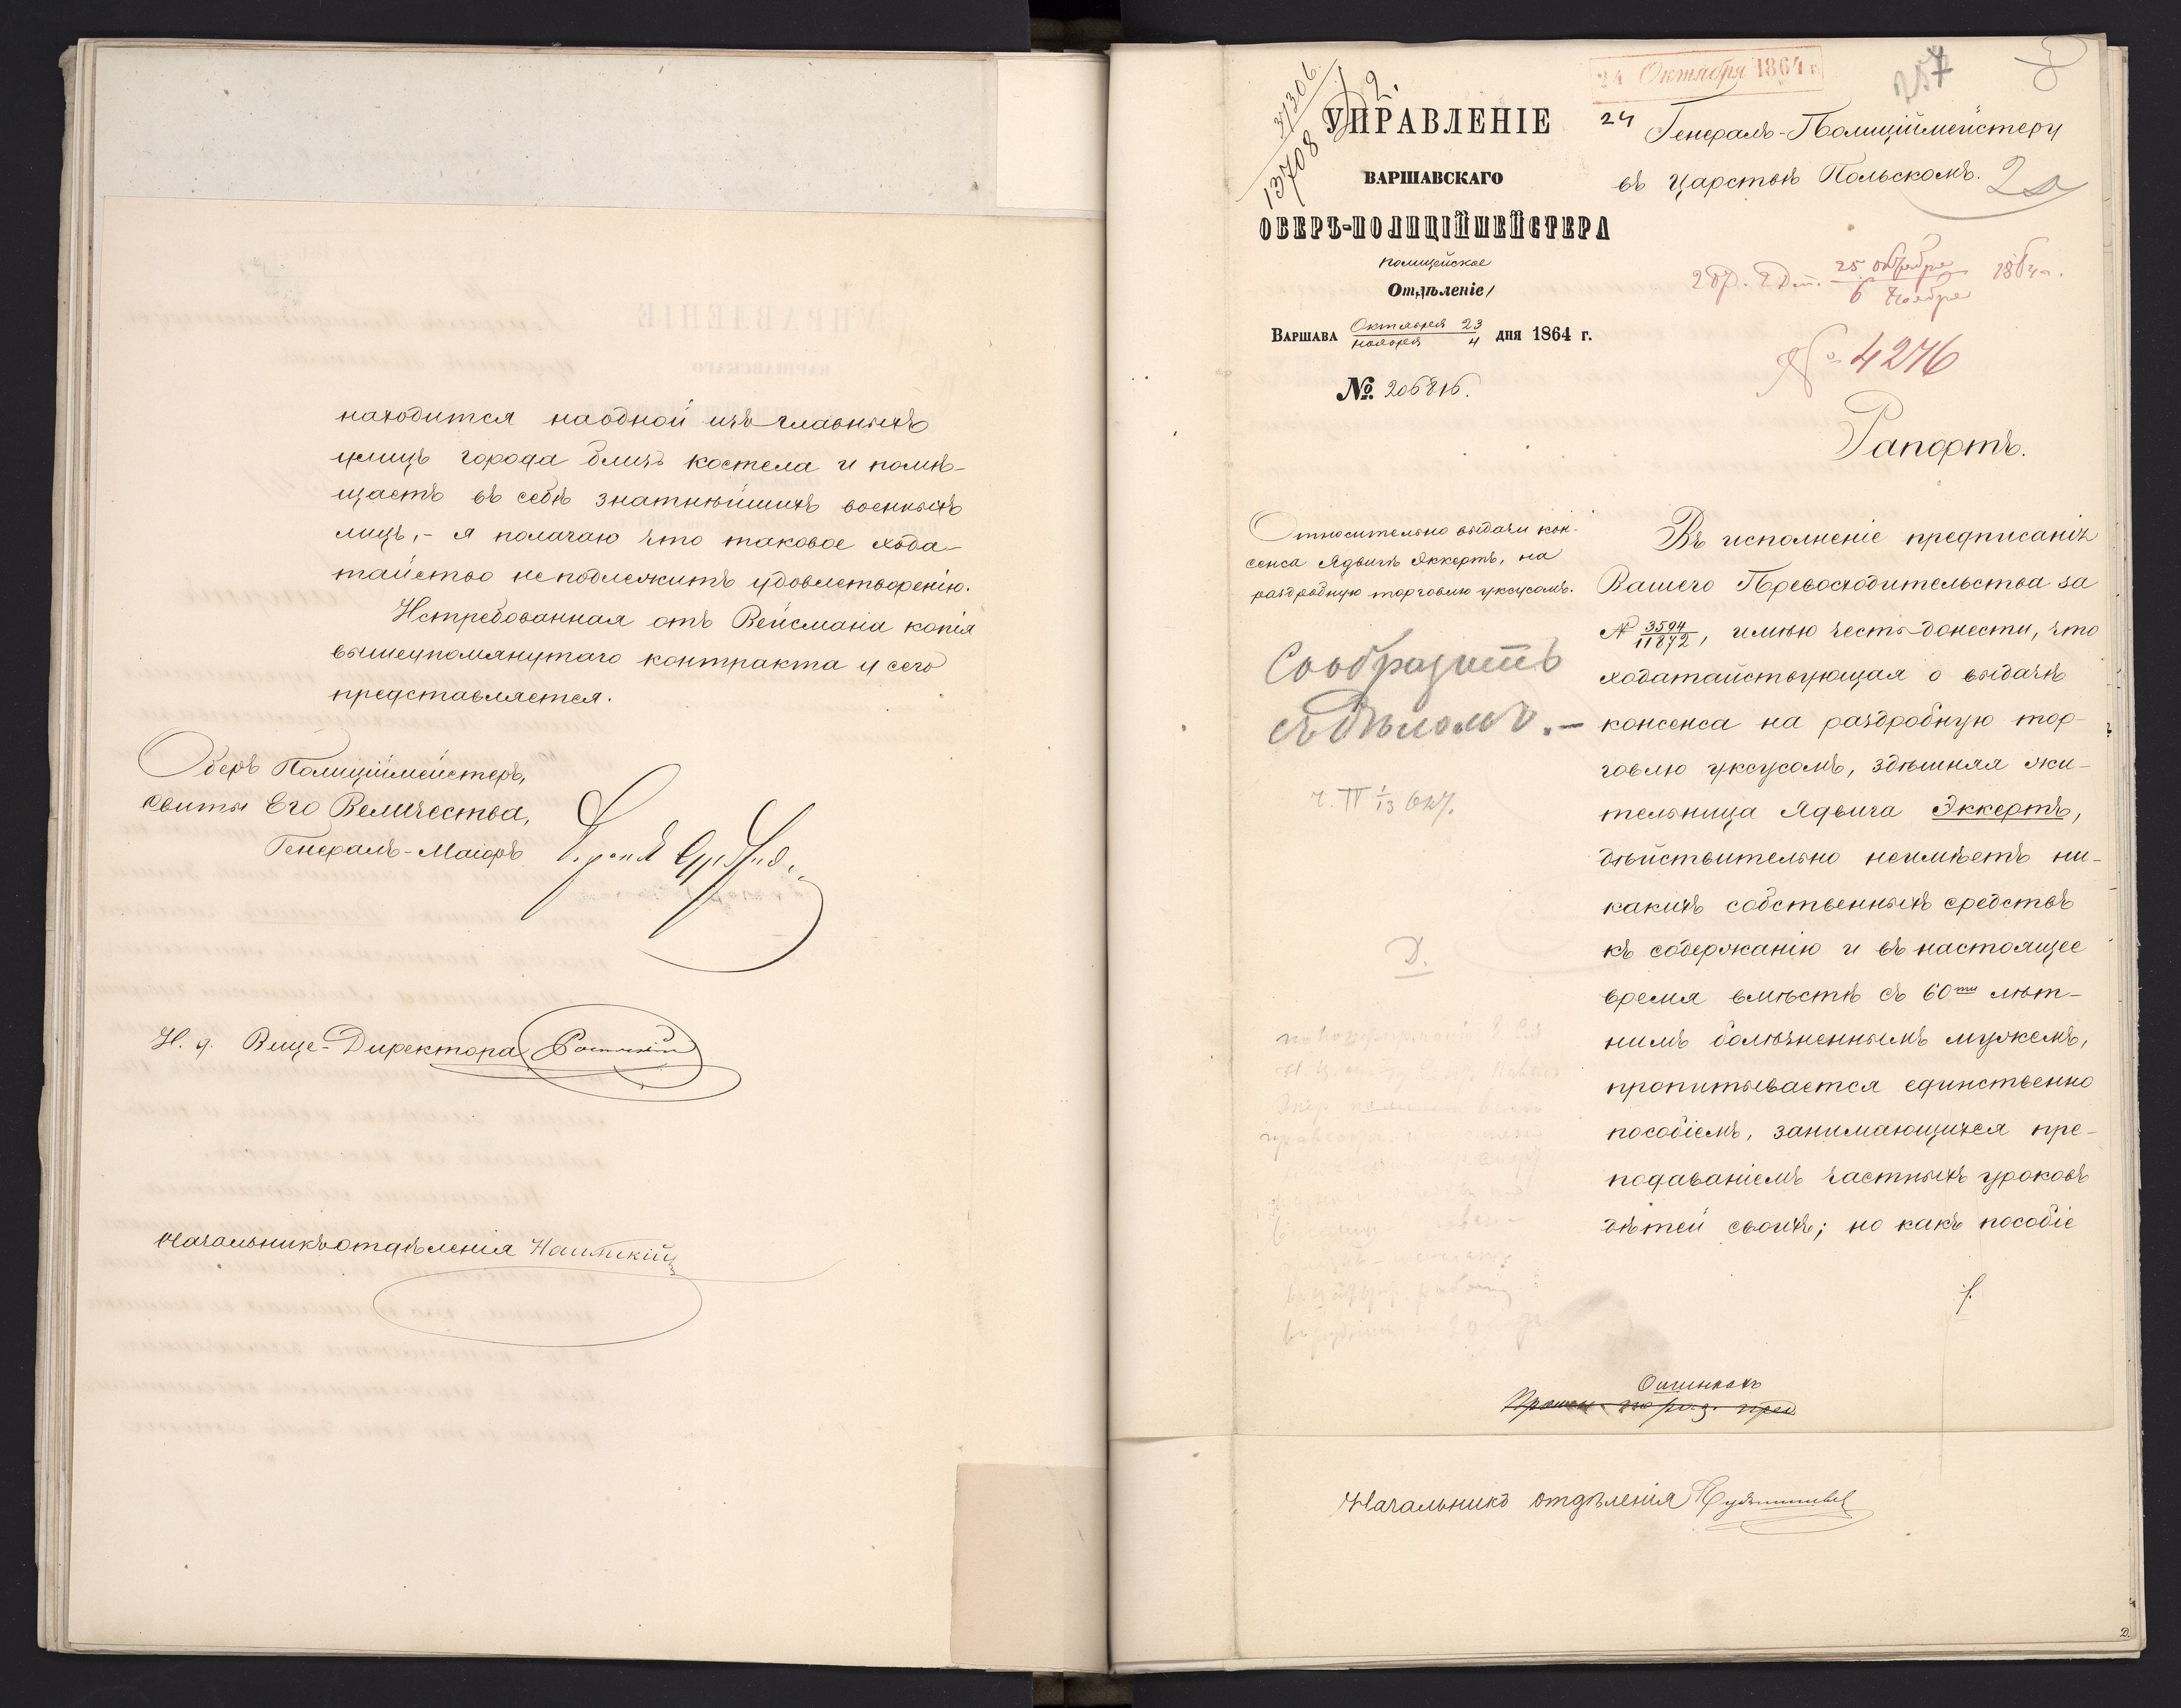 находится наодной изъ главныхъ
улицъ города близъ костела и помѣ-
щаетъ въ себѣ знатнѣйшихъ военныхъ
лицъ, - я полагаю что таковое хода-
тайство неподлежитъ удовлетворенію.
Истребованная отъ Вейсмана копія
вышеупомянутаго контракта у сего
представляется.
Оберъ Полиціймейстеръ,
Свиты Его Величества,
Генералъ-Маіоръ
И. д. Вице-Директора
Начальникъ отдѣленія
24 Октября 1864 г.
257
37306
13708
2.
УПРАВЛЕНІЕ
ВАРШАВСКАГО
ОБЕРЪ-ПОЛИЦІЙМЕЙСТЕРА
полицейское
Отдѣленіе
Варшава Октября 23 / ноября 4 дня 1864 г.
№ 206816.
24 Генералъ-Полиціймейстеру
въ Царствѣ Польскомъ.
25 октября / 6 Ноября 1864 г.
№ 4276
Рапортъ.
Относительно выдачи кон-
сенса Ядвигѣ Эккертъ, на
раздробную торговлю уксусомъ.
Сообразить
съ дѣломъ. -
Д.
Въ исполненіе предписанія
Вашего Превосходительства за
№ 3594/11872, имѣю честь донести, что
ходатайствующая о выдачѣ
консенса на раздробную тор-
говлю уксусомъ, здѣшняя жи-
тельница Ядвига Эккертъ,
дѣйствительно неимѣетъ ни-
какихъ собственныхъ средствъ
къ содержанію и въ настоящее
время вмѣстѣ съ 60ти лѣт-
нимъ болѣзненнымъ мужемъ,
пропитывается единственно
пособіемъ, занимающихся пре-
подаваніемъ частныхъ уроковъ
дѣтей своихъ; но какъ пособіе
Начальникъ отдѣленія